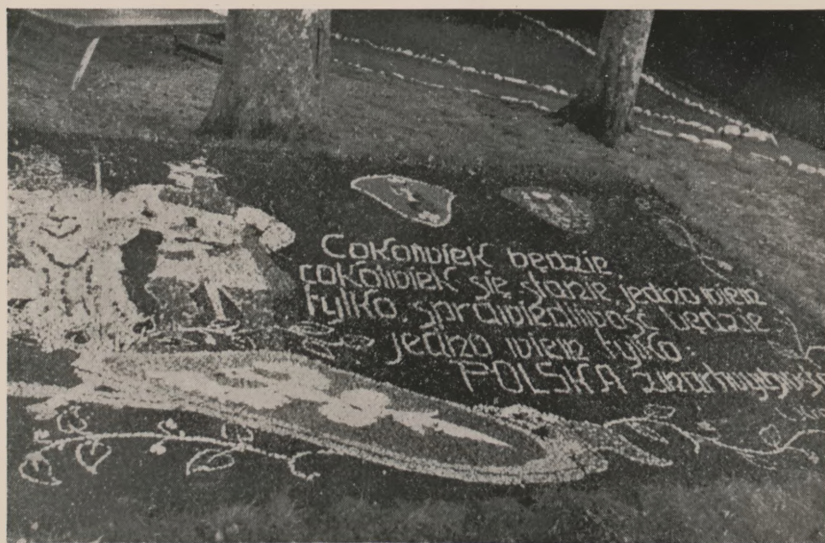 Cokolwiek będzie,
cokolwiek się stanie, jedno wiem
tylko: sprawiedliwość będzie
jedno wiem tylko:
POLSKA zmartwychwsta